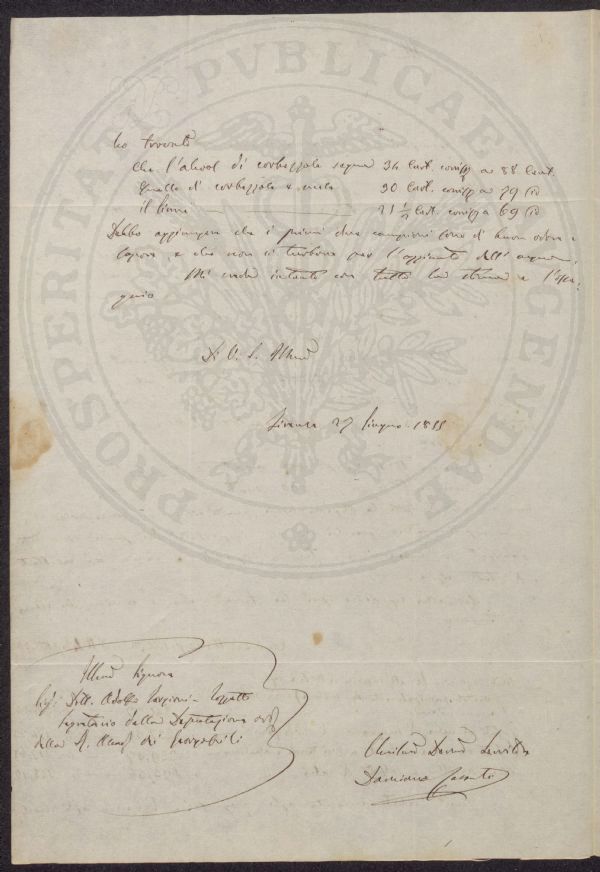 PROSPERITATI PVBLICAE AVGENDAE
ho trovato
che l'alcool di corbezzole segna 34 Cart. corrisp a 88 Cent.
Quello di corbezzole e mele 30 Cart. corrisp a 79 id
il 21 ½ Cart. corrisp a 69 id
Debbo aggiungere che i primi due campioni sono di buon odore e
sapore e che non si turbano per l'aggiunta dell'acqua.
Mi creda intanto con tutta la stima e l'osse-
quio
Di V. S. Illma
Firenze 27 Giugno 1855
Illmo Signore
Sig. Dott. Adolfo Targioni-Tozzetti
Segretario della Deputazione ord
della R. Accad dei Georgofili
Umilmo Devmo Servitore
Damiano Casanti